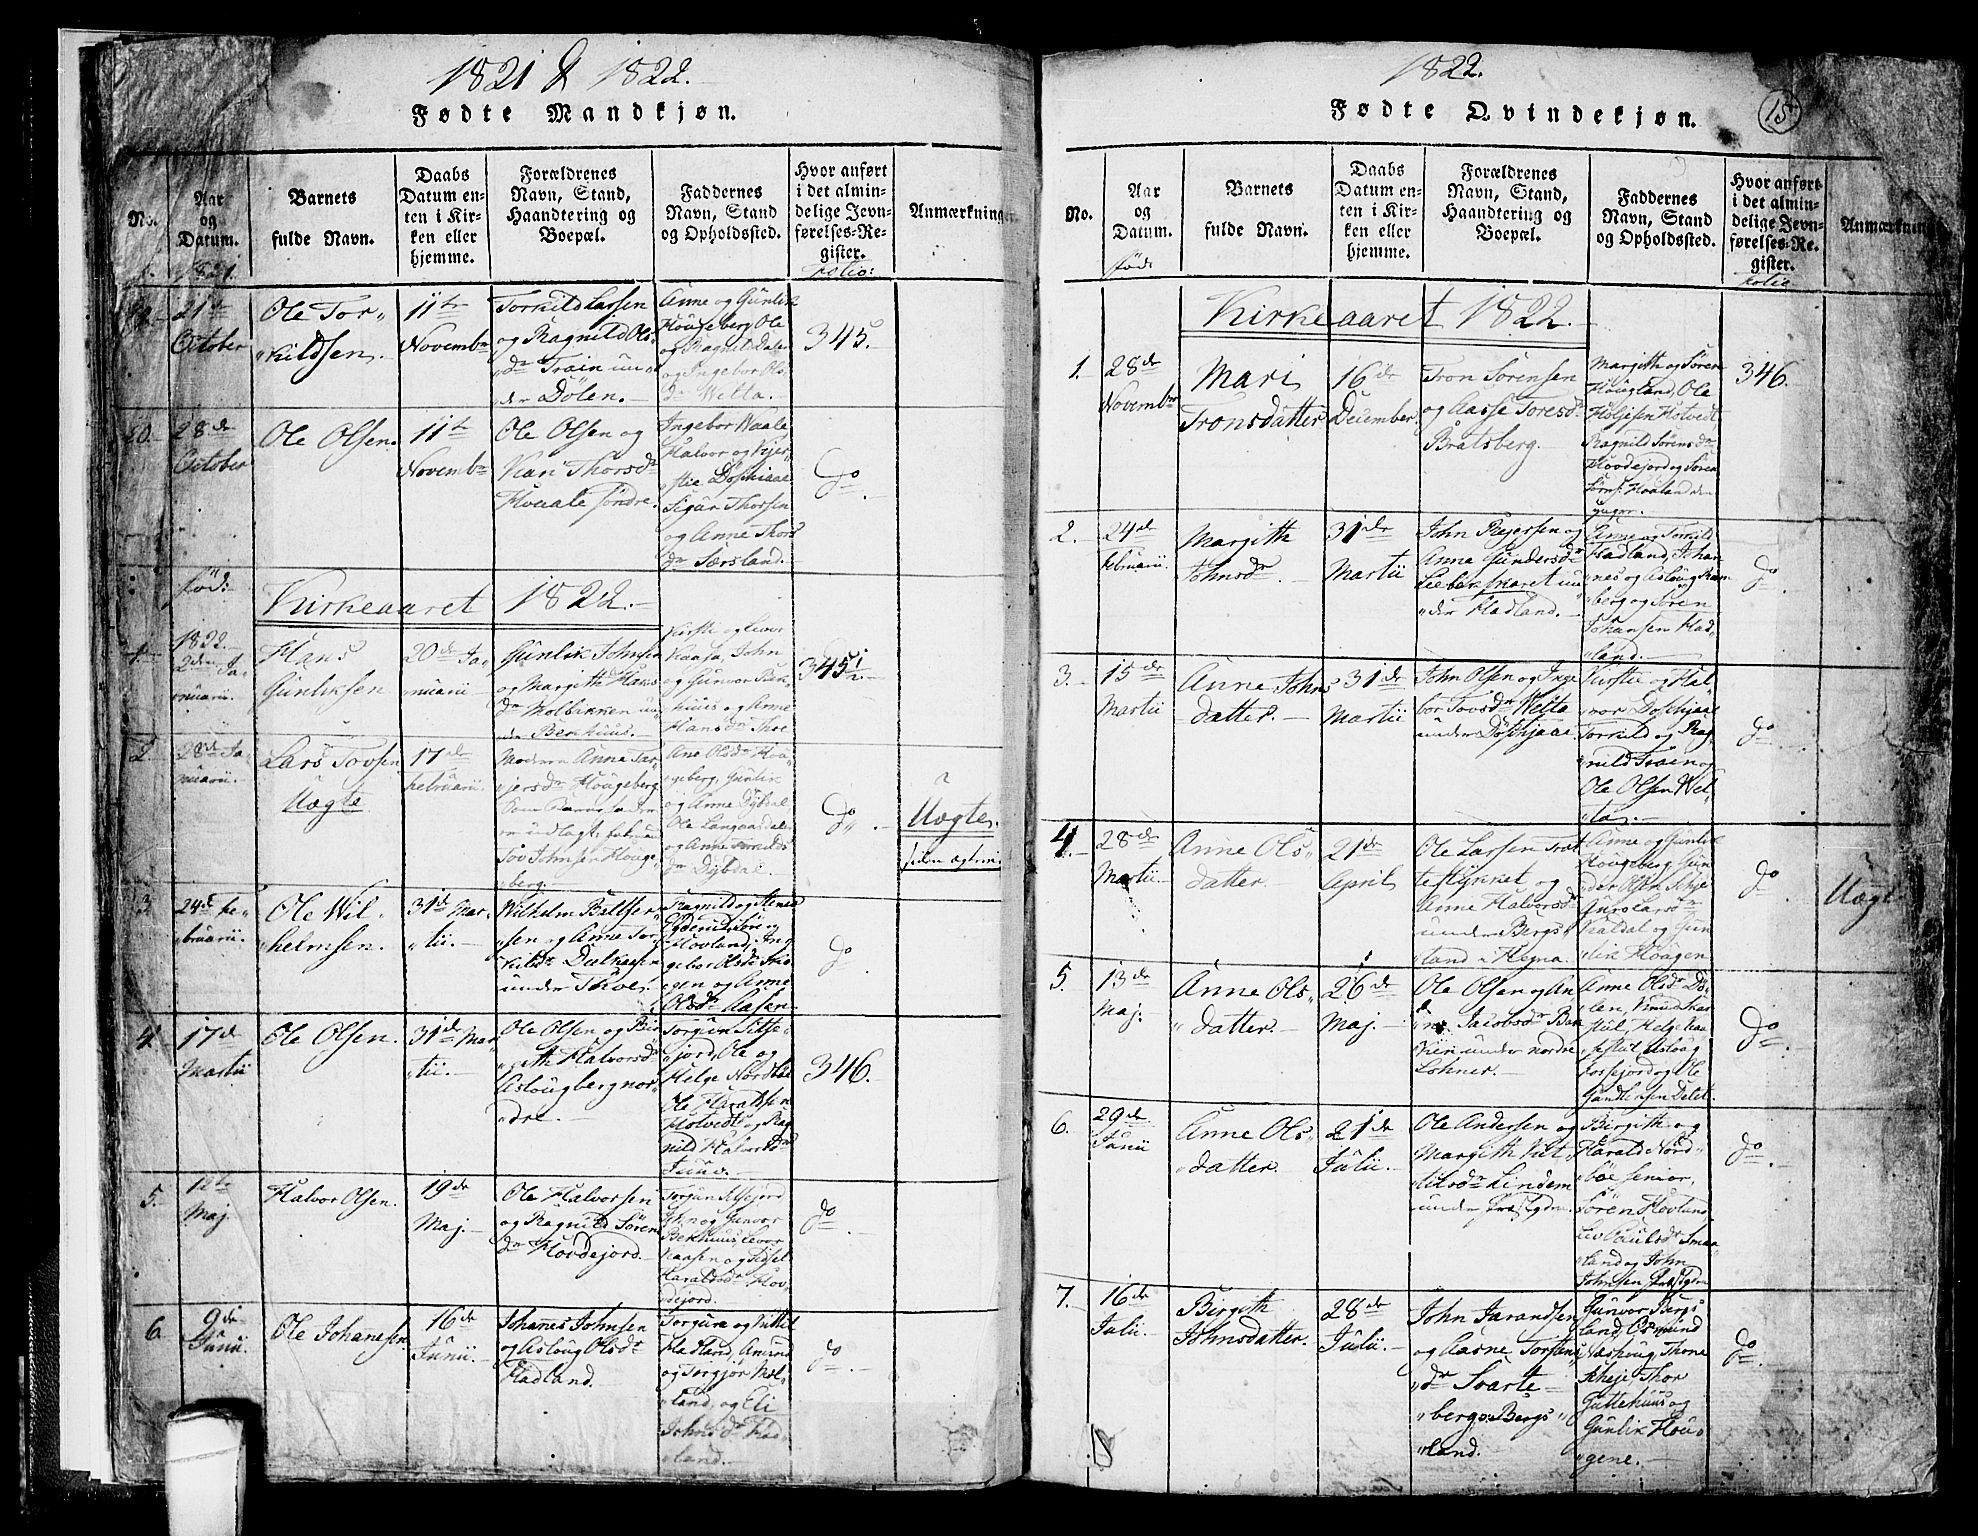 1821 & 1822.
Fødte Mandkjøn.
No.
Aar
og
Datum.
Barnets
fulde Navn.
Daabs
Datum en-
ten i Kir-
ken eller
hjemme.
Forældrenes
Navn, Stand,
Haandtering og
Boepæl.
Faddernes
Navn, Stand
og Opholdssted.
Hvor anført
i det almin-
delige Jevn-
førelses-Re-
gister.
Anmærkninger
1821.
Folio:
21de
October
Ole Tor„
„kildsen.
11te
Novembr
Torkild Larsen
og Ragnild Ols
„dr Traen un„
„der Dölen.
Anne og Gunlik
Hougeberg, Ole
og Ragnil Dalen
og Ingebor Ols
dr Welta.
345.
20.
28de
October
Ole Olsen.
11te
Novembr
Ole Olsen og
Kari Thorsdr
Hvaale söndre.
Ingebor Waale
Halvor og Kjer„
„stie Döphiaae
Sigur Thorsen
og Anne Thors
dr Særsland.
do.
föd:
Kirkeaaret 1822.
1.
1822.
2den Ja„
nuarii.
Hans
Gunliksen
20de Ja„
nuarii
Gunlik Johnsen
og Margith Hans
dr Molbekken un„
der Berhuus.
Kirsti og Levor
Kaasa, John
og Gunvor
huus og Anne
Hansdr
345.
2
28de Ja„
nuarii.
Lars Tovsen
Uægte
17de
Februarii.
Moderen Anna Tar„
„jersdr Hougeberg
Som Barnefader
er udlagt:
Tov Johnsen Houge„
berg.
Ane Olsdr Hou„
„geberg, Gunlik
og Anne Dybdal
Ole Langaasdalen
og Anne Torkilds
dr Dybdal.
do.
Uægte.
3
24de Fe„
„bruarii.
Ole Wil„
„helmsen.
31de Mar„
„tii.
Wilhelm Baltser„
„sen og Anne Tor„
kildsdr Dalkaasen
under
Ragnild og
Hovland, In„
gebor Olsdr
og Anne
Olsdr Aasen
do.
4.
17de
Martii
Ole Olsen.
31de Mar„
„tii.
Ole Olsen og Bir„
„gith Halvorsdr
Aslougberg nor„
„dre.
Torgun Silje„
„jord, Ole og
Helge Nordböe
Ole Haraldsen
Hotvedt og Rag„
nild Halvorsdr
346.
5.
12te
Maj.
Halvor Olsen.
19de
Maj.
Ole Halvorsen
og Ragnild Sörens
dr Hovdejord.
Torgun Silsejord
John og Gunvor
Berhuus Levor
Kaasen og Sidsel
Haraldsdr Hov„
dejord.
do.
6.
9de
Junii
Ole Johanesen
16de
Junii.
Johanes Johnsen
og Aslöug Olsdr
Hadland.
Torgun og Kittil
Hadland, Amund
og Torgjör Mæl„
„land, og Eli
Johnsdr Had„
„land.
do.
1822.
Fødte Qvindekjøn.
15
No.
Aar
og
Datum.
föd:
Barnets
fulde Navn.
Daabs
Datum en-
ten i Kir-
ken eller
hjemme.
Forældrenes
Navn, Stand,
Haandtering og
Boepæl.
Faddernes
Navn, Stand
og Opholdssted.
Hvor anført
i det almin-
delige Jevn-
førelses-Re-
gister.
Folio
Anmærkning
Kirkeaaret 1822.
1.
28de
Novembr
Mari
Tronsdatter
16de
December
Tron Sörensen
og Aasse Toresdr
Bratsberg.
Margith og Sören
Hougland, Ole
Holjesen Hotvedt
Ragnild Sörensdr
Hovdejord og Sören
Sörens: Hovland den
yngre.
346.
2.
24de
Februarii
Margith
Johnsdr.
31de
Martii
John Rejersen og
Anne Gundersdr
Lieberskaret un„
„der Hadland.
Anne og Torkild
Hadland, Johan„
„nes og Asloug Ram„
„berg og Sören
Johansen Had„
„land.
do.
3.
15de
Martii
Anne Johns
datter.
31de
Martii
John Olsen og Inge„
bor Tovsdr Welta
under Döphjaae
Kirstie og Hal„
„vor Döphjaae
Torkild og Rag„
„nild Traen og
Ole Olsen Wel„
„ta.
do.
4.
28de
Martii.
Anne Ols„
datter.
21de
April
Ole Larsen Træt„
testykket og
Anne Halvorsdr
under Bergs„
„land i Hegna.
Anne og Gunlik
Hougeberg Gun„
„der Olsen Skje
Guro Larsdr
Kaldal og Gun„
„lik Hougen
do.
Uægte
5.
13de
Maj.
Anne Ols„
„datter.
26de
Maj.
Ole Olsen og An„
„ne Jacobsdr Bak„
ken under nordre
Lohner.
Anne Olsdr Dö„
„len,
Helge Kaa„
Asloug
og Ole
Gundersen
do.
6.
29de
Junii
Anne Ols„
„datter.
21de
Julii.
Ole Andersen og
Margith Kit„
„tilsdr Lindem
under Præstgdn.
Birgith og
Harald Nord„
„böe senior,
Sören Hovland
Liv Poulsdr Smaa„
„land og John
Johnsen Præstgdn
do.
7.
16de
Julii.
Birgith
Johnsdatter.
28de
Julii.
John Jarandsen
og Aasne Torstens
„dr Svarte„
„berg u: Bergs„
„land.
Gunvor Bergs„
land, Osmund
Næshoug Thone
Skeje Thor
Gottehuus og
Gunlik Hou„
„gene.
do.